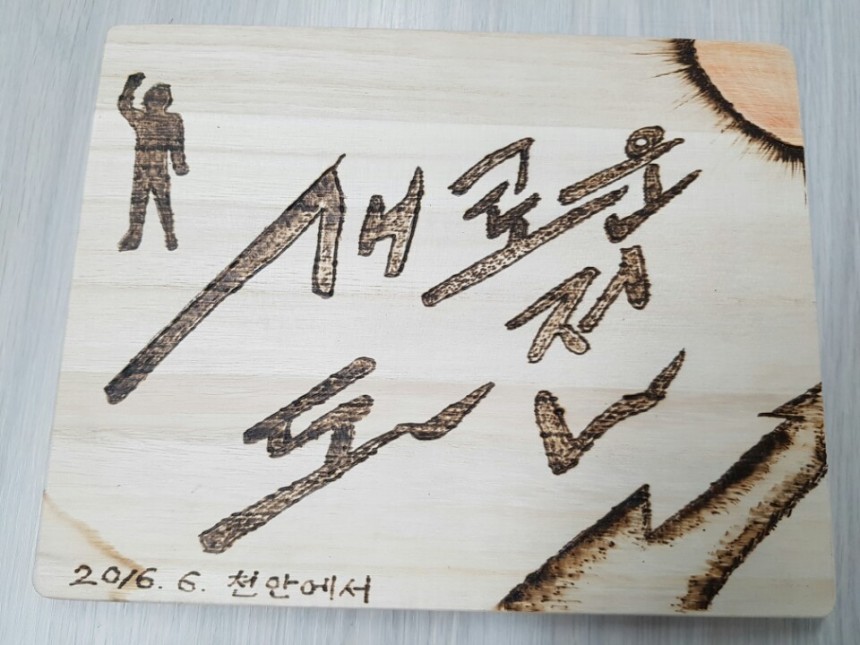 새로운
도전
2016. 6. 천안에서